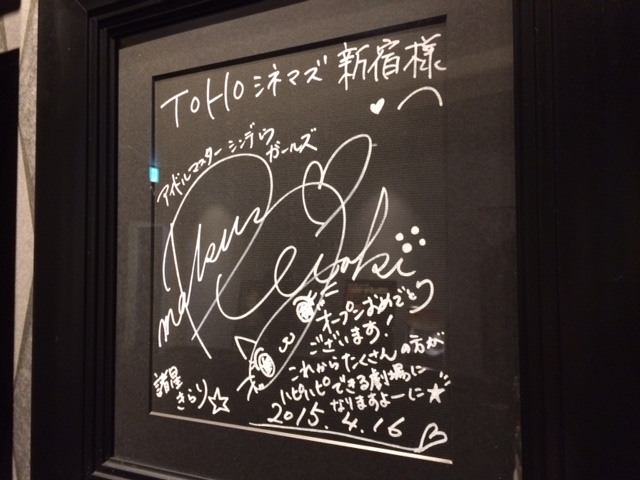 TOHOシネマズ 新宿様
へ
アイドルマスター シンデレラ
ガールズ
オープンおめでとう
ございます!
これからたくさんの方が
ハピハピできる劇場に
なりますよーに☆
諸星
きらり☆
2015.4.16